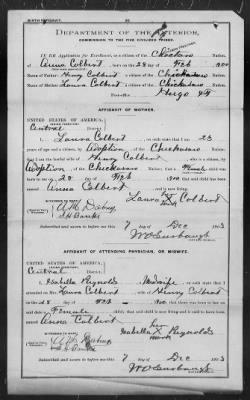 BIRTH AFFIDAVIT.
DEPARTMENT OF THE INTERIOR,
COMMISSION TO THE FIVE CIVILIZED TRIBES.
IN RE Application for Enrollment, as a citizen of the Choctaw Nation,
of Anna Colbert, born on the 28 day of Feb, 1900
Name of Father: Henry Colbert a citizen of the Chickasaw Nation.
Name of Mother: Laura Colbert a citizen of the Chickasaw Nation.
Post-office Hugo I.T.
AFFIDAVIT OF MOTHER.
UNITED STATES OF AMERICA,
Central District.
I, Laura Colbert, on oath state that I am 23
years of age and a citizen, by Adoption, of the Chickasaw Nation,
that I am the lawful wife of Henry Colbert, who is a citizen, by
Adoption, of the Chickasaw Nation, that a Female child was
born to me on 28 day of Feb, 1900, that said child has been
named Anna Colbert, and is now living.
Laura X Colbert
WITNESSES TO MARK:
Subscribed and sworn to before me this 7 day of Dec 1903
AFFIDAVIT OF ATTENDING PHYSICIAN, OR MIDWIFE.
UNITED STATES OF AMERICA,
Central District.
I, Isabella Reynolds, a Midwife, on oath state that I
attended on Mrs. Laura Colbert, wife of Henry Colbert
on the 28 day of Feb, 1900, that there was born to her on
said date a Female child, that said child is now living and is said to have been
named Anna Colbert
Isabella X Reynolds
WITNESSES TO MARK:
Subscribed and sworn to before me this 7 day of Dec 1903